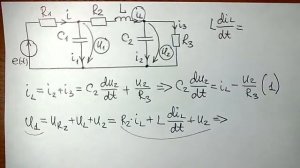 R₁ i R₂ L i_L
C₁ u₁ C₂ u₂ i₃ R₃
e(t) i₁ i₂
L di_L/dt =
i_L = i₂ + i₃ = C₂ du₂/dt + u₂/R₃ ⇒ C₂ du₂/dt = i_L − u₂/R₃ (1)
u₁ = u_R₂ + u_L + u₂ = R₂·i_L + L di_L/dt + u₂ ⇒